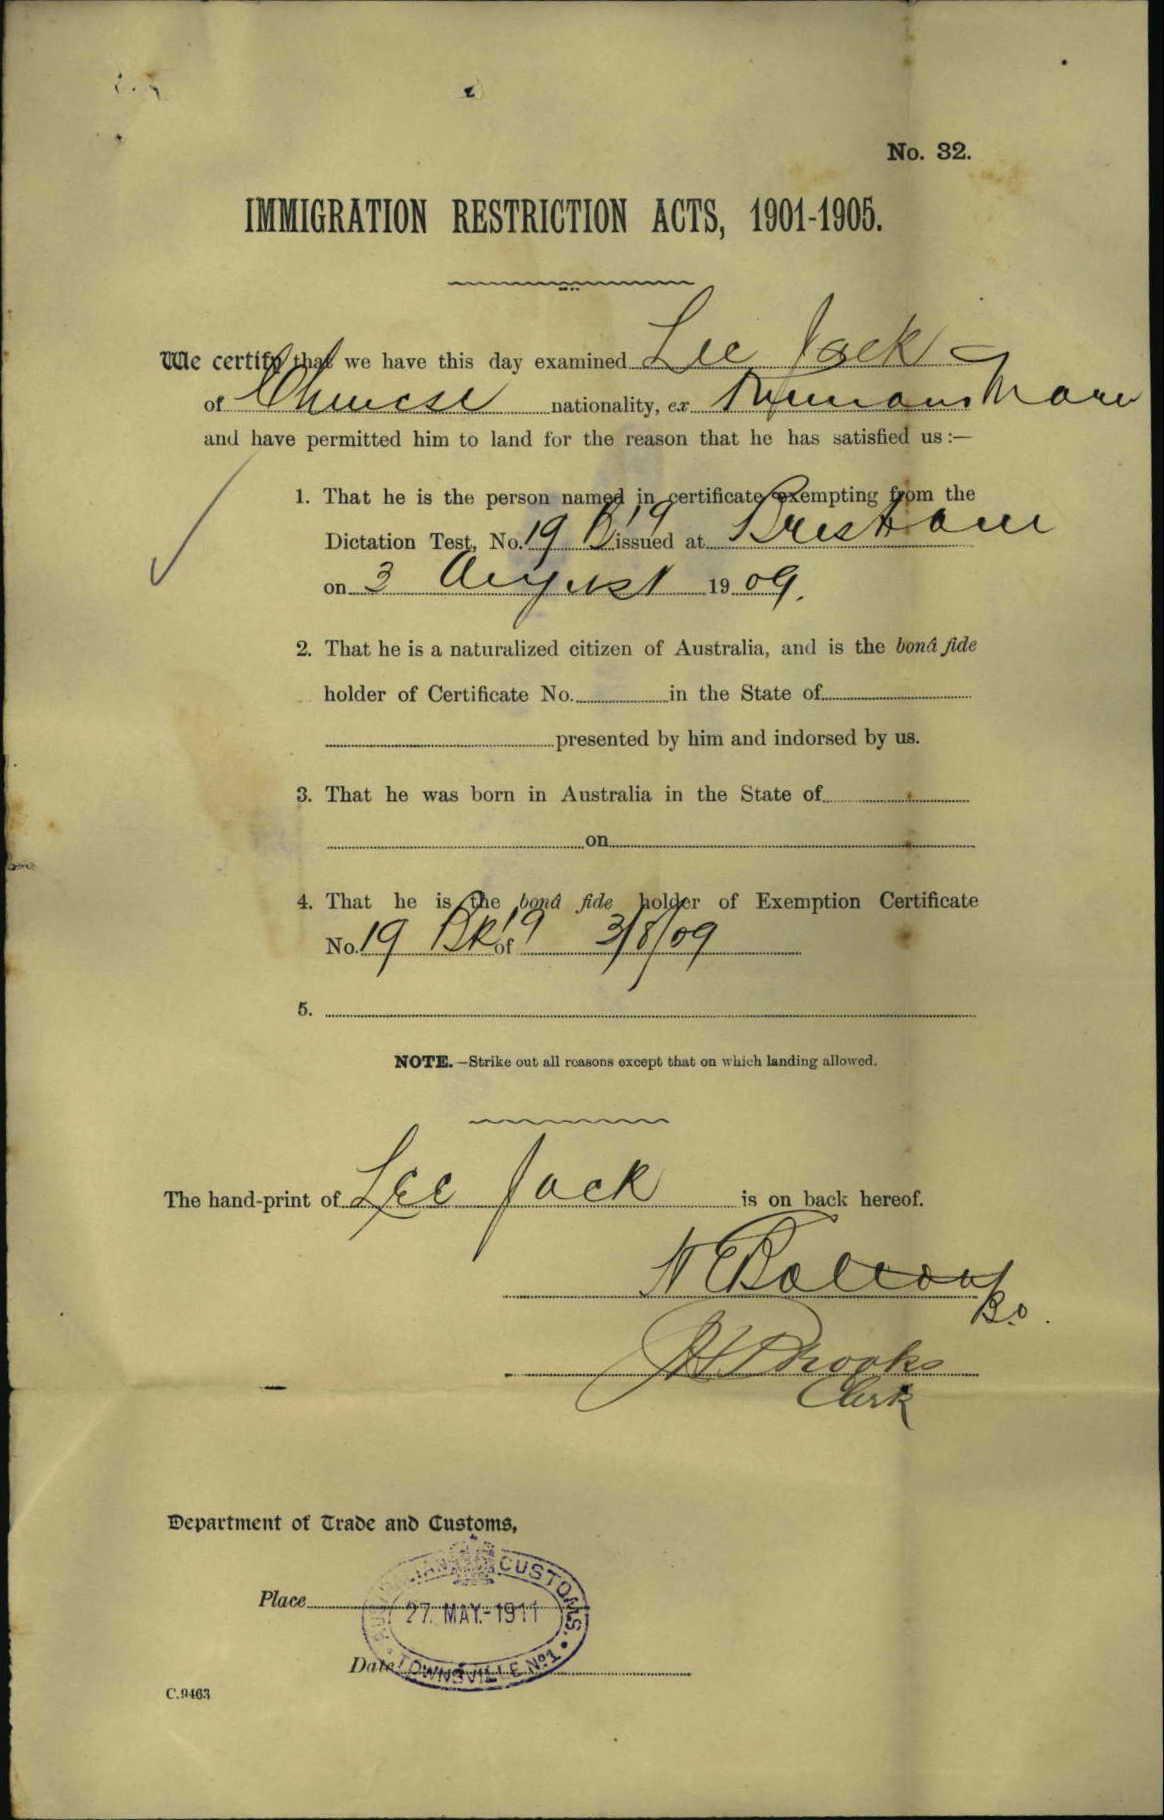 No. 32.
IMMIGRATION RESTRICTION ACTS, 1901-1905.
We certify that we have this day examined Lee Jack
of Chinese nationality, ex
and have permitted him to land for the reason that he has satisfied us :—
1. That he is the person named in certificate exempting from the
Dictation Test, No. 19 issued at Brisbane
on 3 August 1909.
2. That he is a naturalized citizen of Australia, and is the bonâ fide
holder of Certificate No. in the State of
presented by him and indorsed by us.
3. That he was born in Australia in the State of
on
4. That he is the bonâ fide holder of Exemption Certificate
No. 19 of 3/8/09
5.
NOTE.—Strike out all reasons except that on which landing allowed.
The hand-print of Lee Jack is on back hereof.
Brooks
Clerk
Department of Trade and Customs,
CUSTOMS.
Place
27. MAY.-1911
Date
TOWNSVILLE No.1
C.9463